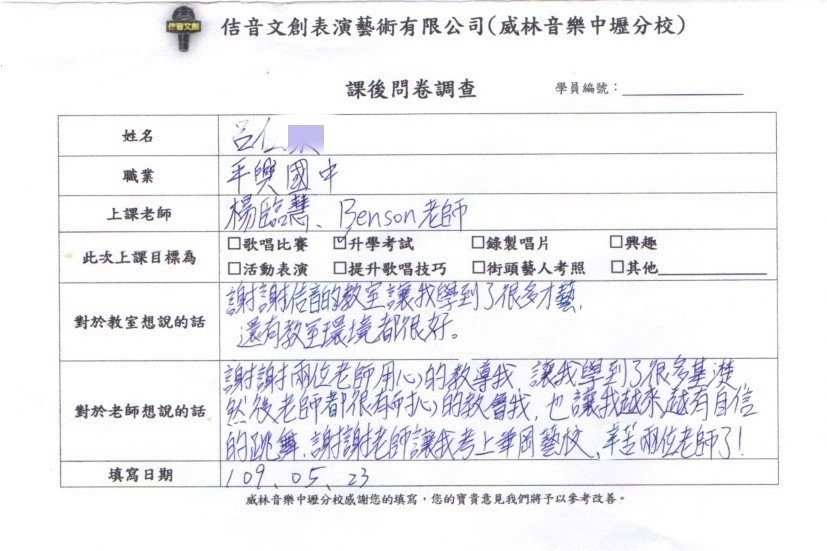 佶音文創
佶音文創表演藝術有限公司(威林音樂中壢分校)
課後問卷調查
學員編號：
姓名 呂仁
職業 平興國中
上課老師 楊臨慧、Benson老師
此次上課目標為
□歌唱比賽 ☑升學考試 □錄製唱片 □興趣
□活動表演 □提升歌唱技巧 □街頭藝人考照 □其他
對於教室想說的話
謝謝佶音的教室讓我學到了很多才藝,
還有教室環境都很好。
對於老師想說的話
謝謝兩位老師用心的教導我,讓我學到了很多基礎
然後老師都很有耐心的教會我,也讓我越來越有自信
的跳舞,謝謝老師讓我考上華岡藝校、辛苦兩位老師了!
填寫日期 109.05.23
威林音樂中壢分校感謝您的填寫，您的寶貴意見我們將予以參考改善。